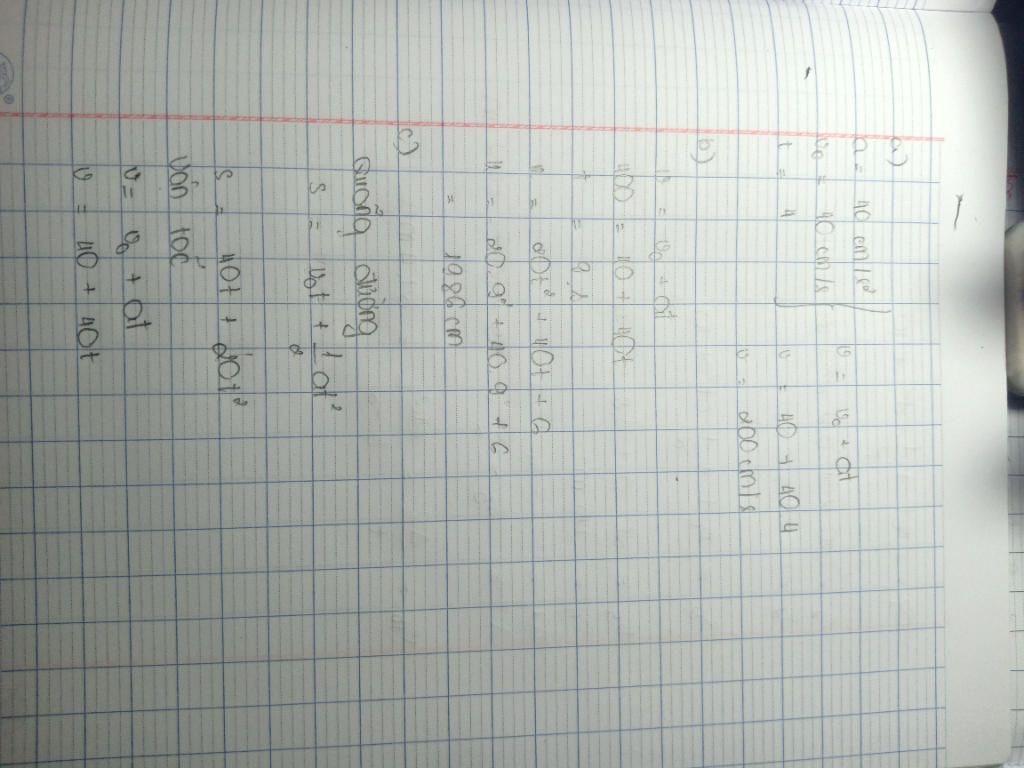 a)
a = 40 cm/s²
v₀ = 40 cm/s
t = 4
v = v₀ + at
v = 40 + 40.4
v = 200 cm/s
b)
v = v₀ + at
400 = 40 + 40t
t = 9 s
x = 20t² + 40t + 6
x = 20.9² + 40.9 + 6
= 1986 cm
c)
Quãng đường
s = v₀t + 1/2 at²
s = 40t + 20t²
Vận tốc
v = v₀ + at
v = 40 + 40t